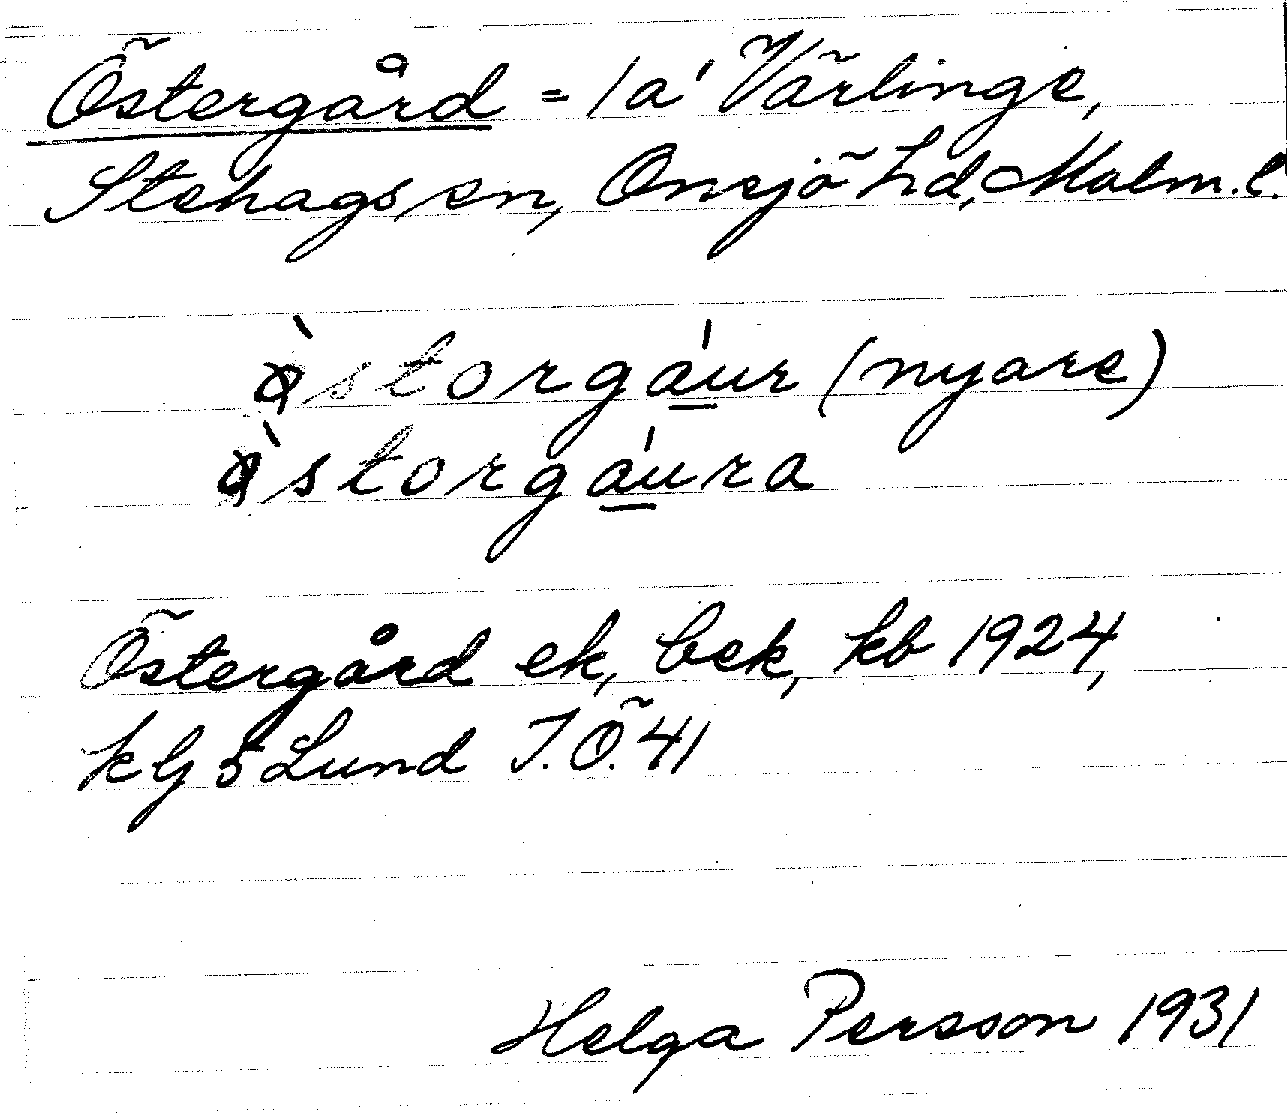 Östergård = 1a' Värlinge,
Stehags sn, Onsjö hd, Malm. l.
storgáur (nyare)
storgáura
Östergård ek, bek, kb 1924,
Lund J.Ö. 41
Helga Persson 1931